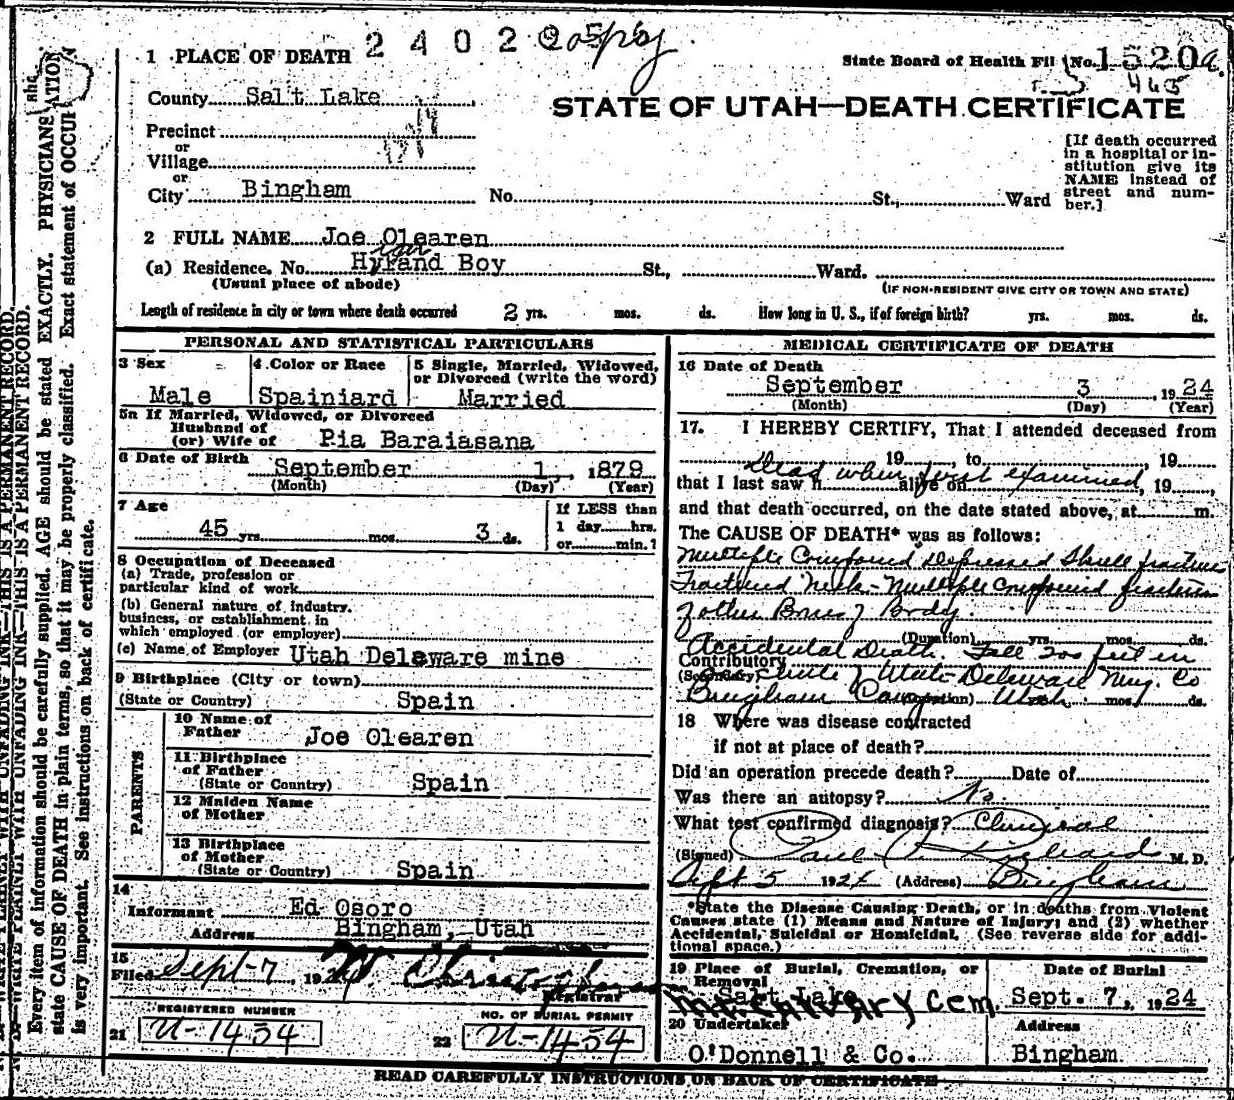 2402
Copy
1 PLACE OF DEATH
State Board of Health File No. 1520a.
465
County Salt Lake
STATE OF UTAH—DEATH CERTIFICATE
Precinct
or
Village
or
City Bingham No. St., Ward
[If death occurred
in a hospital or in-
stitution give its
NAME instead of
street and num-
ber.]
2 FULL NAME Joe Olearen
(a) Residence. No. Hyland Boy St., Ward.
(Usual place of abode) (IF NON-RESIDENT GIVE CITY OR TOWN AND STATE)
Length of residence in city or town where death occurred 2 yrs. mos. ds. How long in U. S., if of foreign birth? yrs. mos. ds.
PERSONAL AND STATISTICAL PARTICULARS
3 Sex
Male
4 Color or Race
Spainiard
5 Single, Married, Widowed,
or Divorced (write the word)
Married
5a If Married, Widowed, or Divorced
Husband of
(or) Wife of Pia Baraiasana
6 Date of Birth
September 1, 1879
(Month) (Day) (Year)
7 Age
45 yrs. mos. 3 ds.
If LESS than
1 day hrs.
or min.?
8 Occupation of Deceased
(a) Trade, profession or
particular kind of work
(b) General nature of industry.
business, or establishment in
which employed (or employer)
(c) Name of Employer Utah Delaware mine
9 Birthplace (City or town)
(State or Country) Spain
PARENTS
10 Name of
Father Joe Olearen
11 Birthplace
of Father
(State or Country) Spain
12 Maiden Name
of Mother
13 Birthplace
of Mother
(State or Country) Spain
14
Informant Ed Osoro
Address Bingham, Utah
15
Filed Sept-7, 1924
Registrar
REGISTERED NUMBER
21 U-1434
NO. OF BURIAL PERMIT
22 U-1434
MEDICAL CERTIFICATE OF DEATH
16 Date of Death
September 3, 1924
(Month) (Day) (Year)
17. I HEREBY CERTIFY, That I attended deceased from
19, to, 19
Dead when first examined
that I last saw h alive on, 19,
and that death occurred, on the date stated above, at m.
The CAUSE OF DEATH* was as follows:
Multiple Compound Depressed Skull fracture
Fractured Neck - Multiple Compound fractures
of other Bones of Body.
(Duration) yrs. mos. ds.
Accidental Death. Fall 200 feet in
Contributory
(Secondary) Chute of Utah-Delaware Mng. Co
Bingham Canyon Utah.
(Duration) mos. ds.
18 Where was disease contracted
if not at place of death?
Did an operation precede death? Date of
Was there an autopsy? No.
What test confirmed diagnosis? Clinical
(Signed) Paul M. D.
Sept 5 1924 (Address) Bingham
*State the Disease Causing Death, or in deaths from Violent
Causes state (1) Means and Nature of Injury; and (2) whether
Accidental, Suicidal or Homicidal. (See reverse side for addi-
tional space.)
19 Place of Burial, Cremation, or
Removal
Salt Lake
Mt. Calvary Cem.
Date of Burial
Sept. 7, 1924
20 Undertaker
O'Donnell & Co.
Address
Bingham.
READ CAREFULLY INSTRUCTIONS ON BACK OF CERTIFICATE
WRITE PLAINLY WITH UNFADING INK—THIS IS A PERMANENT RECORD.
Every item of information should be carefully supplied. AGE should be stated EXACTLY. PHYSICIANS
state CAUSE OF DEATH in plain terms, so that it may be properly classified. Exact statement of
is very important. See instructions on back of certificate.